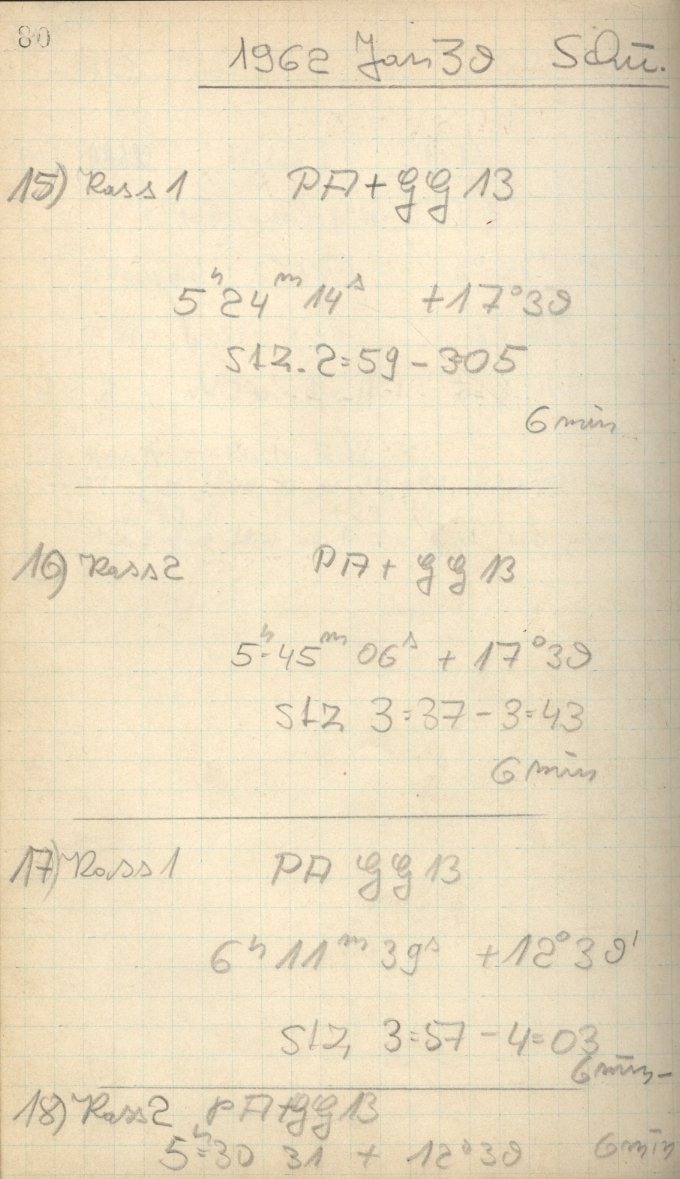 80
1962 Jan 30 Schü.
15) Kass 1 PA + GG 13
5h 24m 14s +17°30
StZ. 2=59 - 305
6 min
16) Kass 2 PA + GG 13
5h 45m 06s + 17°30
StZ 3=37 - 3=43
6 min
17) Kass 1 PA GG 13
6h 11m 39s +12°30'
StZ, 3=57 - 4=03
6 min -
18) Kass 2 PA + GG 13
5h 30 31 + 12°30 6 min